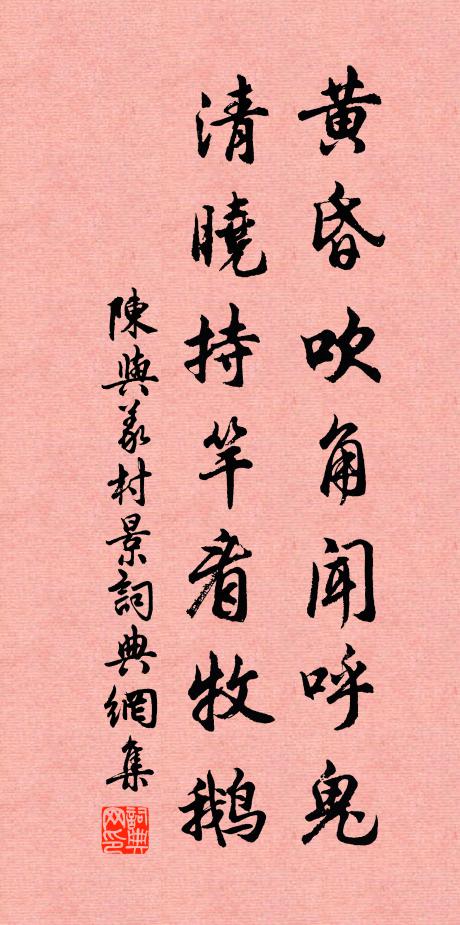 黄昏吹角聞呼鬼
清曉持竿看牧鵝
陳與義村景詞典網集
詞典网印